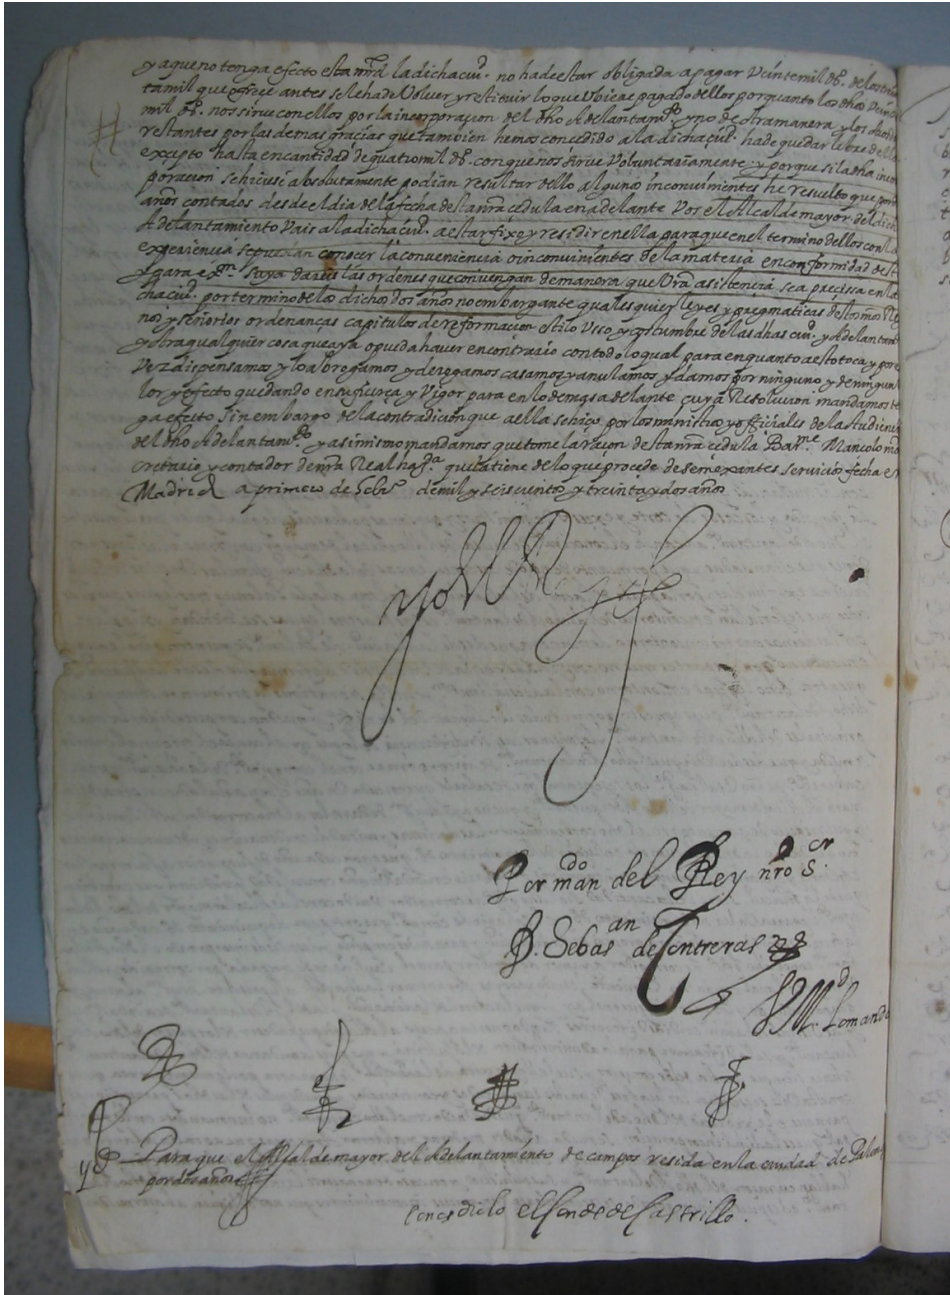 y a que no tenga efecto esta mrd la dicha ciud. no ha de estar obligada a pagar Veinte mil ds. de los tre
ta mil que ofreçe antes se le ha de Volver y restituir lo que Vbiere pagado dellos por quanto los dhos Vein
mil ds. nos sirue con ellos por la incorporaçion del dho Adelantamto. y no de otra manera y los
restantes por las demas graçias que tambien hemos conçedido a la dicha çiud. ha de quedar
excepto hasta en cantidad de quatro mil ds. con que nos sirue Voluntariamente. y porque si la dha incor
poraçion se hiciese absolutamente podian resultar dello algunos inconuinientes he resuelto que por
años contados desde el dia de la fecha desta nra çedula en adelante Vos el Alcalde mayor del dich
Adelantamiento Vais a la dicha çiud. a estar fixo y residir en ella para que en el termino dellos con la
experiençia se puedan conoçer la conveniençia o inconuinientes de la materia en conformidad de
y para exon. suya dareis las ordenes que conuengan de manera que Vra asistençia sea precissa en la
cha ciud. por termino de los dichos dos años no embargante quales quier leyes y pregmaticas destos nros Re
nos y señorios ordenanças capitulos de reformaçion estilo Vsso y costumbre de las dhas ciud. y Adelantam
y otra qualquier cosa que aya o pueda hauer en contrario con todo lo qual para en quanto a esto toca y por
Vez dispensamos y lo abrogamos y derogamos casamos y anulamos y damos por ninguno y de ningun
lor y efecto quedando en su fuerça y Vigor para en lo demas adelante cuya Resoluçion mandamos te
ga efecto sin embargo de la contradiçion que a ella se hiço por los ministros y offiçiales de la Audiençia
del dho Adelantamto. y asimismo mandamos que tome la raçon desta nra çedula Barme. Mançolo
cretario y contador de nra Real hada. que la tiene de lo que proçede de semexantes seruiçios fecha en
Madrid a primero de de mil y seisçientos y treinta y dos años
yo el Rey
Por mando del Rey nro Sor
D. Sebasan de Contreras
Para que el Alcalde mayor del Adelantamiento de campos resida en la ciudad de Palen
por dos años
Conçediolo el Conde de Castrillo.